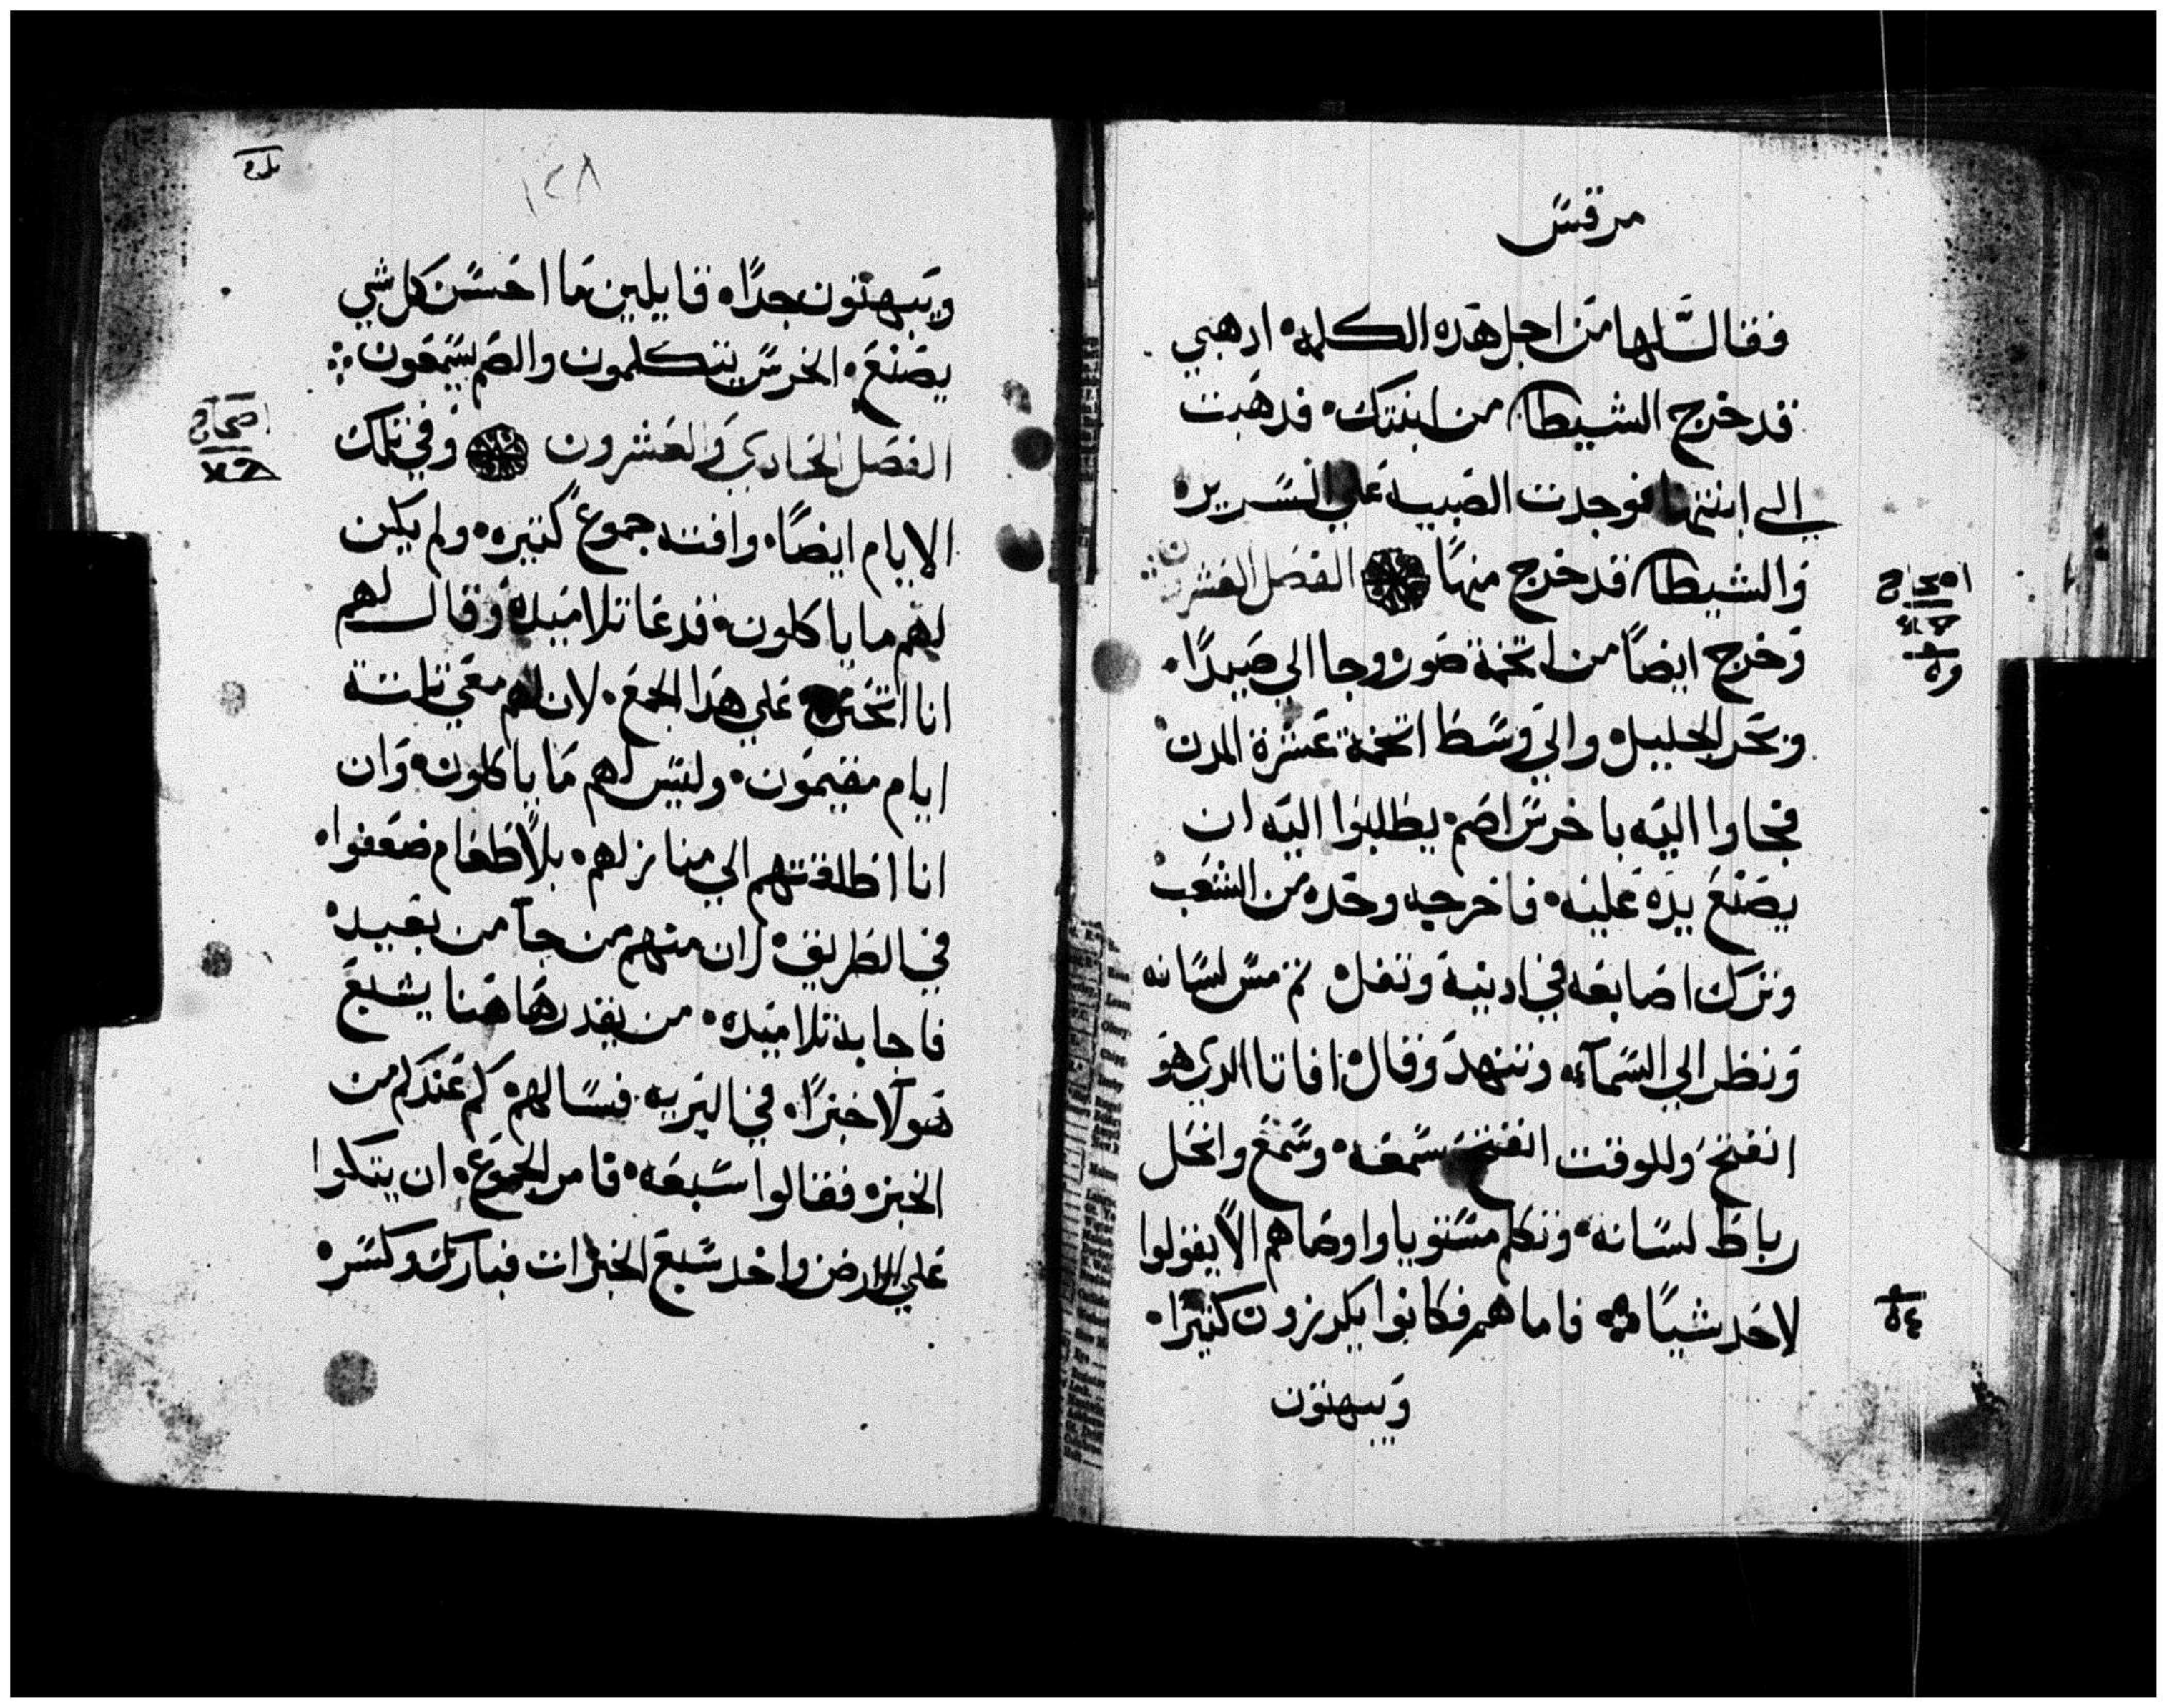 مرقس
فقال لها من اجل هده الكلمه ادهبي
قد خرج الشيطان من ابنتك فدهبت
الي ابنتها فوجدت الصبيه علي السرير
والشيطان قد خرج منها الفصل العشرون
وخرج ايضا من اتخمة صور وجا الي صيدا
وبحر الجليل والي وسط اتخمة عشرة المدن
فجاوا اليه باخرس اصم يطلبوا اليه ان
يصنع يده عليه فاخرجه وحده من الشعب
وترك اصابعه في ادنيه وتفل تم مس لسانه
ونظر الي السماء وتنهد وقال افاتا الدي هو
انفتح وللوقت انفتح سمعه وسمع وانحل
رباط لسانه وتكلم مستويا واوصاهم الا يقولوا
لاحد شيا فاما هم فكانوا يكرزون كتيرا
ويبهتون
اصحاح
٥٤
١٢٨
ويبهتون جدا قايلين ما احسن كل شي
يصنع الخرس يتكلمون والصم يسمعون
الفصل الحادي والعشرون وفي تلك
الايام ايضا وافته جموع كتيره ولم يكن
لهم ما ياكلون فدعا تلاميده وقال لهم
انا اتحنن علي هدا الجمع لان لهم معي تلتة
ايام مقيمون وليس لهم ما ياكلون وان
انا اطلقتهم الي منازلهم بلا طعام ضعفوا
في الطريق لان منهم من جا من بعيد
فاجابه تلاميده من يقدر هاهنا يشبع
هولا خبزا في البريه فسالهم كم عندكم من
الخبز فقالوا سبعه فامر الجموع ان يتكوا
علي الارض واخد سبع الخبزات فبارك وكسر
اصحاح